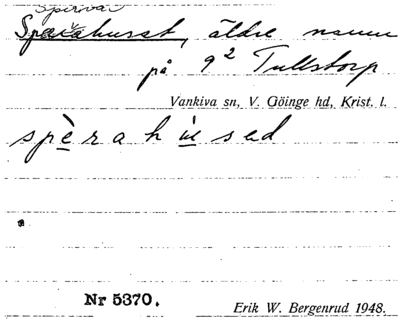 Spirva
Sparahurst, äldre namn
på 9² Tullstorp
Vankiva sn, V. Göinge hd, Krist. l.
spèrahused
Nr 5370.
Erik W. Bergenrud 1948.